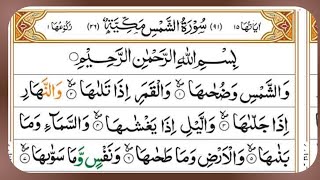 اٰیَاتُهَا ۱۵ (۹۱) سُوْرَةُ الشَّمْسِ مَكِّیَّةٌ (۲۶) رُكُوْعُهَا ۱
بِسْمِ اللّٰهِ الرَّحْمٰنِ الرَّحِیْمِ
وَالشَّمْسِ وَضُحٰىهَا ۱ وَالْقَمَرِ اِذَا تَلٰىهَا ۲ وَالنَّهَارِ
اِذَا جَلّٰىهَا ۳ وَالَّیْلِ اِذَا یَغْشٰىهَا ۴ وَالسَّمَآءِ وَمَا
بَنٰىهَا ۵ وَالْاَرْضِ وَمَا طَحٰىهَا ۶ وَنَفْسٍ وَّمَا سَوّٰىهَا ۷